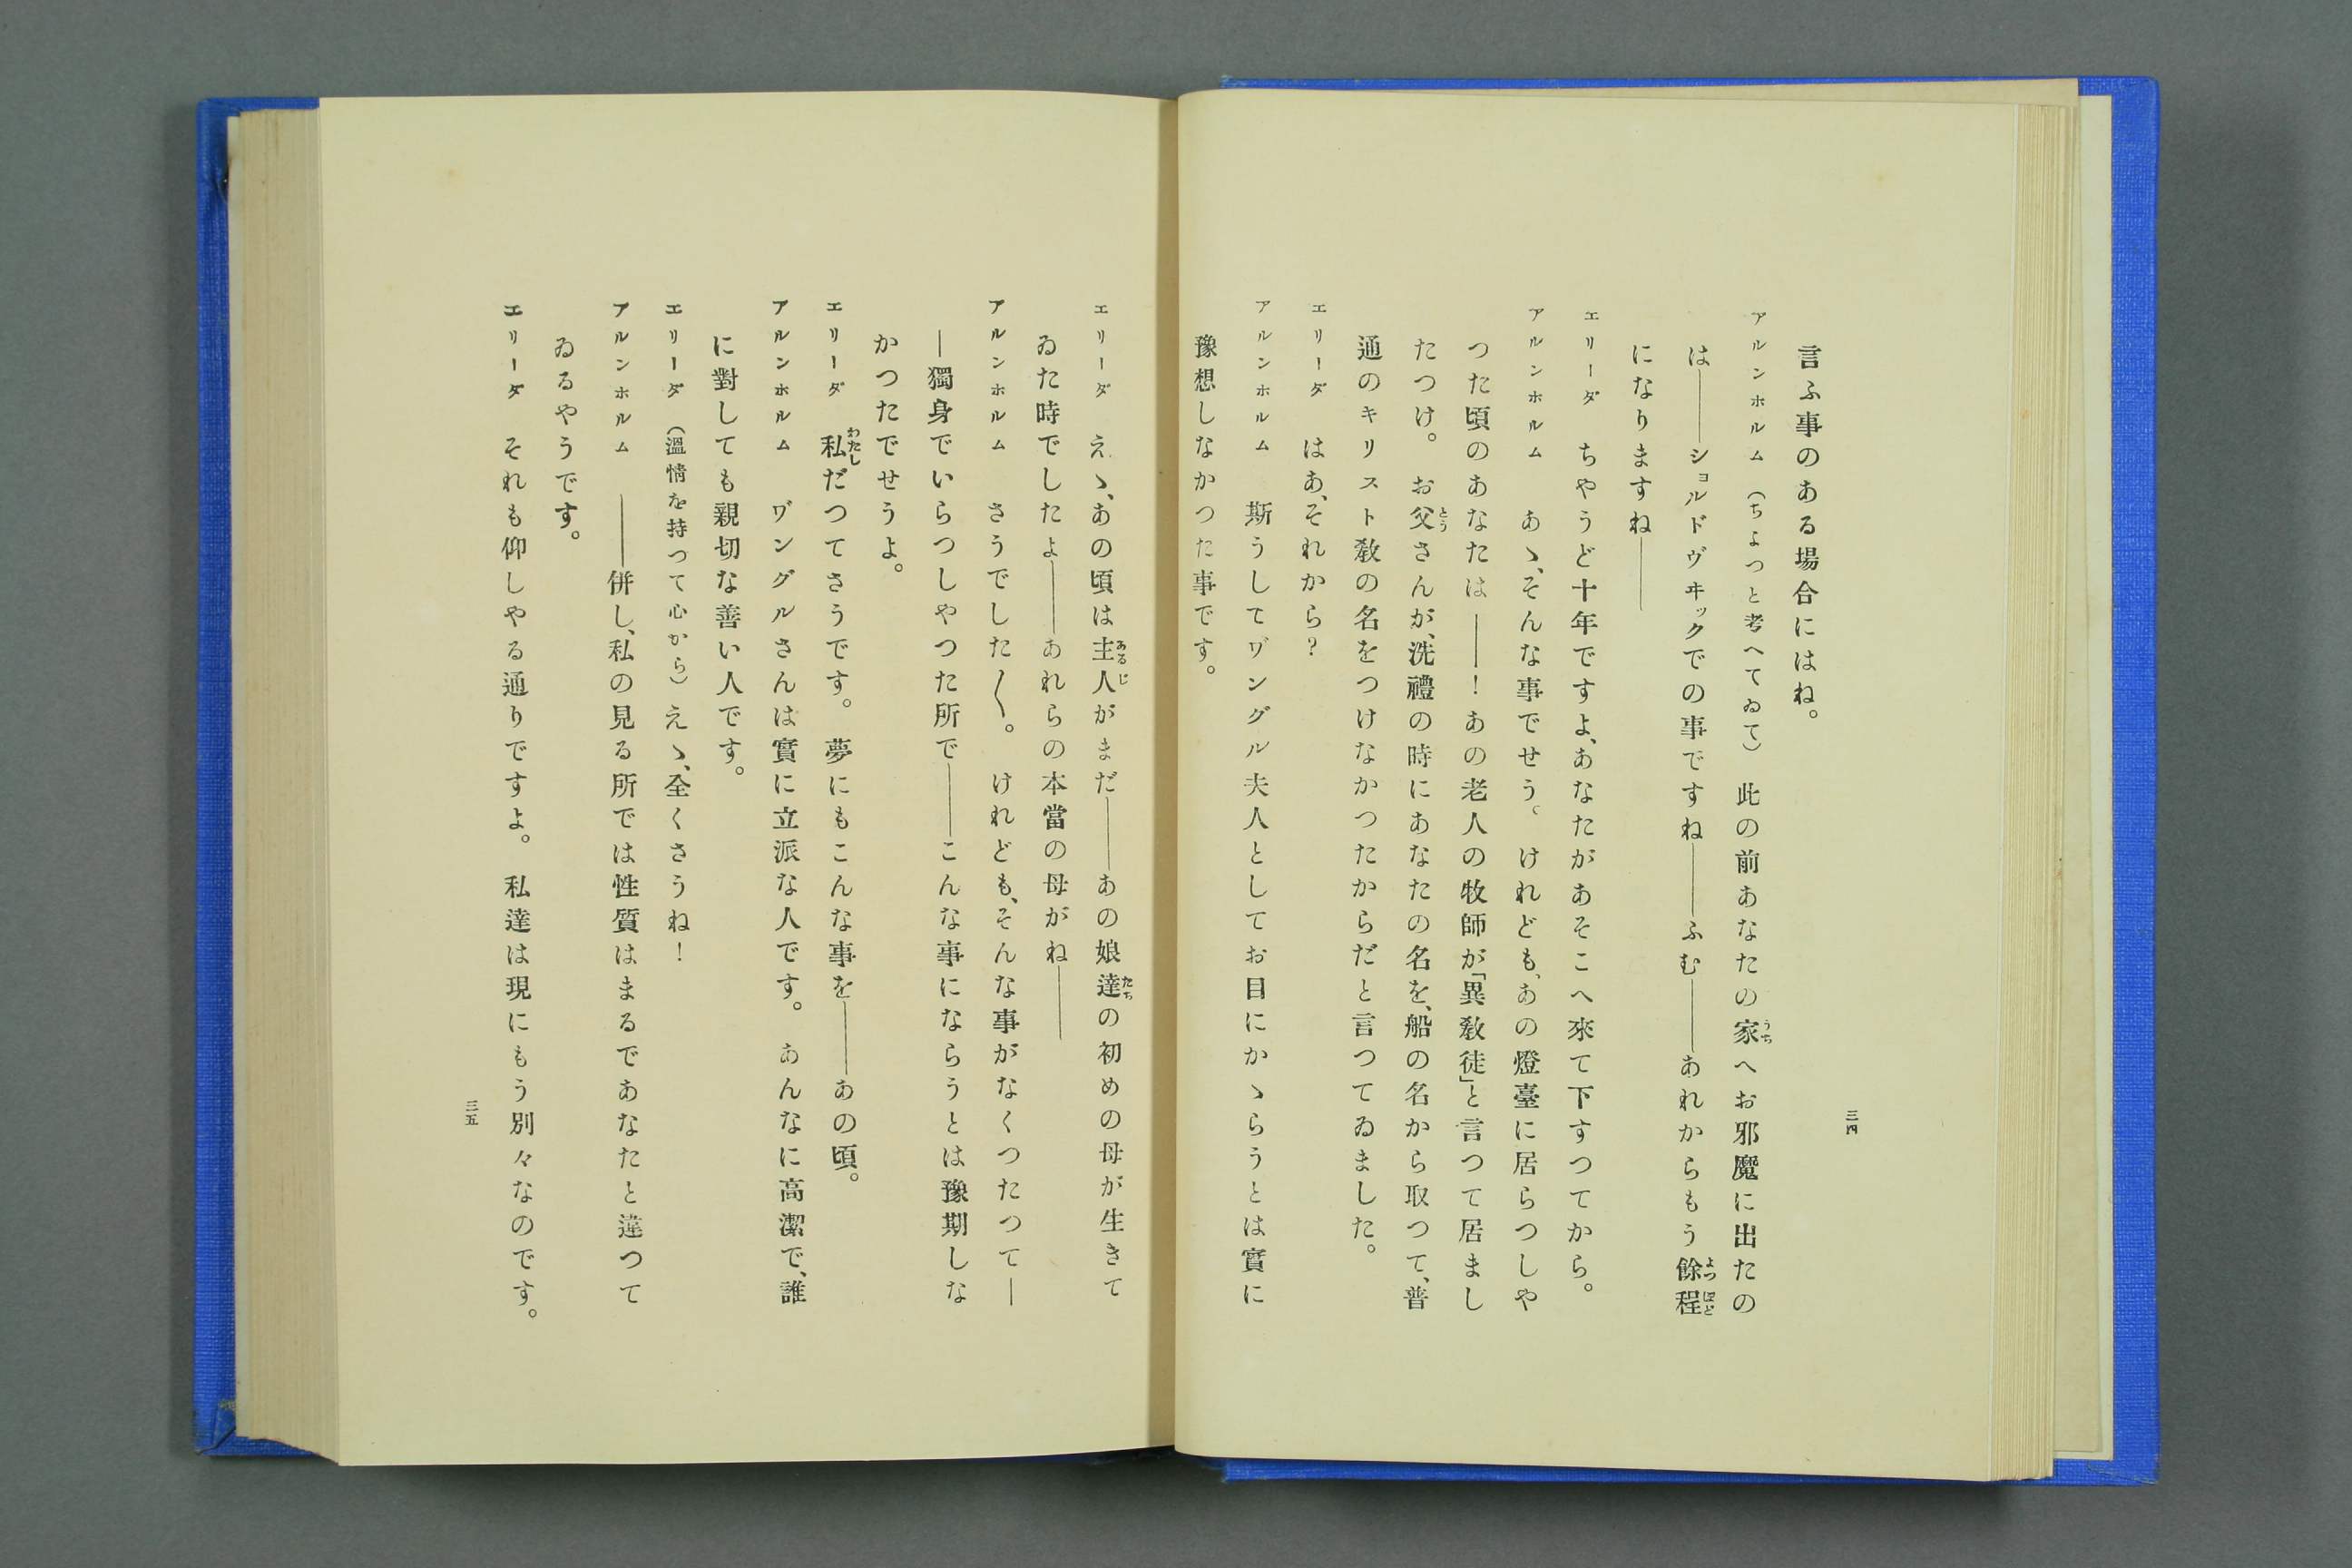 三四
言ふ事のある場合にはね。
アルンホルム (ちよつと考へてゐて) 此の前あなたの家へお邪魔に出たの
は――ショルドヴヰックでの事ですね――ふむ――あれからもう餘程
になりますね――
エリーダ ちやうど十年ですよ、あなたがあそこへ來て下すつてから。
アルンホルム あゝ、そんな事でせう。けれども、あの燈臺に居らつしや
つた頃のあなたは――！あの老人の牧師が「異敎徒」と言つて居まし
たつけ。お父さんが、洗禮の時にあなたの名を、船の名から取つて、普
通のキリスト敎の名をつけなかつたからだと言つてゐました。
エリーダ はあ、それから？
アルンホルム 斯うしてワ゛ングル夫人としてお目にかゝらうとは實に
豫想しなかつた事です。
エリーダ えゝ、あの頃は主人がまだ――あの娘達の初めの母が生きて
ゐた時でしたよ――あれらの本當の母がね――
アルンホルム さうでした〱。けれども、そんな事がなくつたつて―
―獨身でいらつしやつた所で――こんな事にならうとは豫期しな
かつたでせうよ。
エリーダ 私だつてさうです。夢にもこんな事を――あの頃。
アルンホルム ワ゛ングルさんは實に立派な人です。あんなに高潔で、誰
に對しても親切な善い人です。
エリーダ (溫情を持つて心から) えゝ、全くさうね！
アルンホルム ――併し、私の見る所では性質はまるであなたと違つて
ゐるやうです。
エリーダ それも仰しやる通りですよ。私達は現にもう別々なのです。
三五